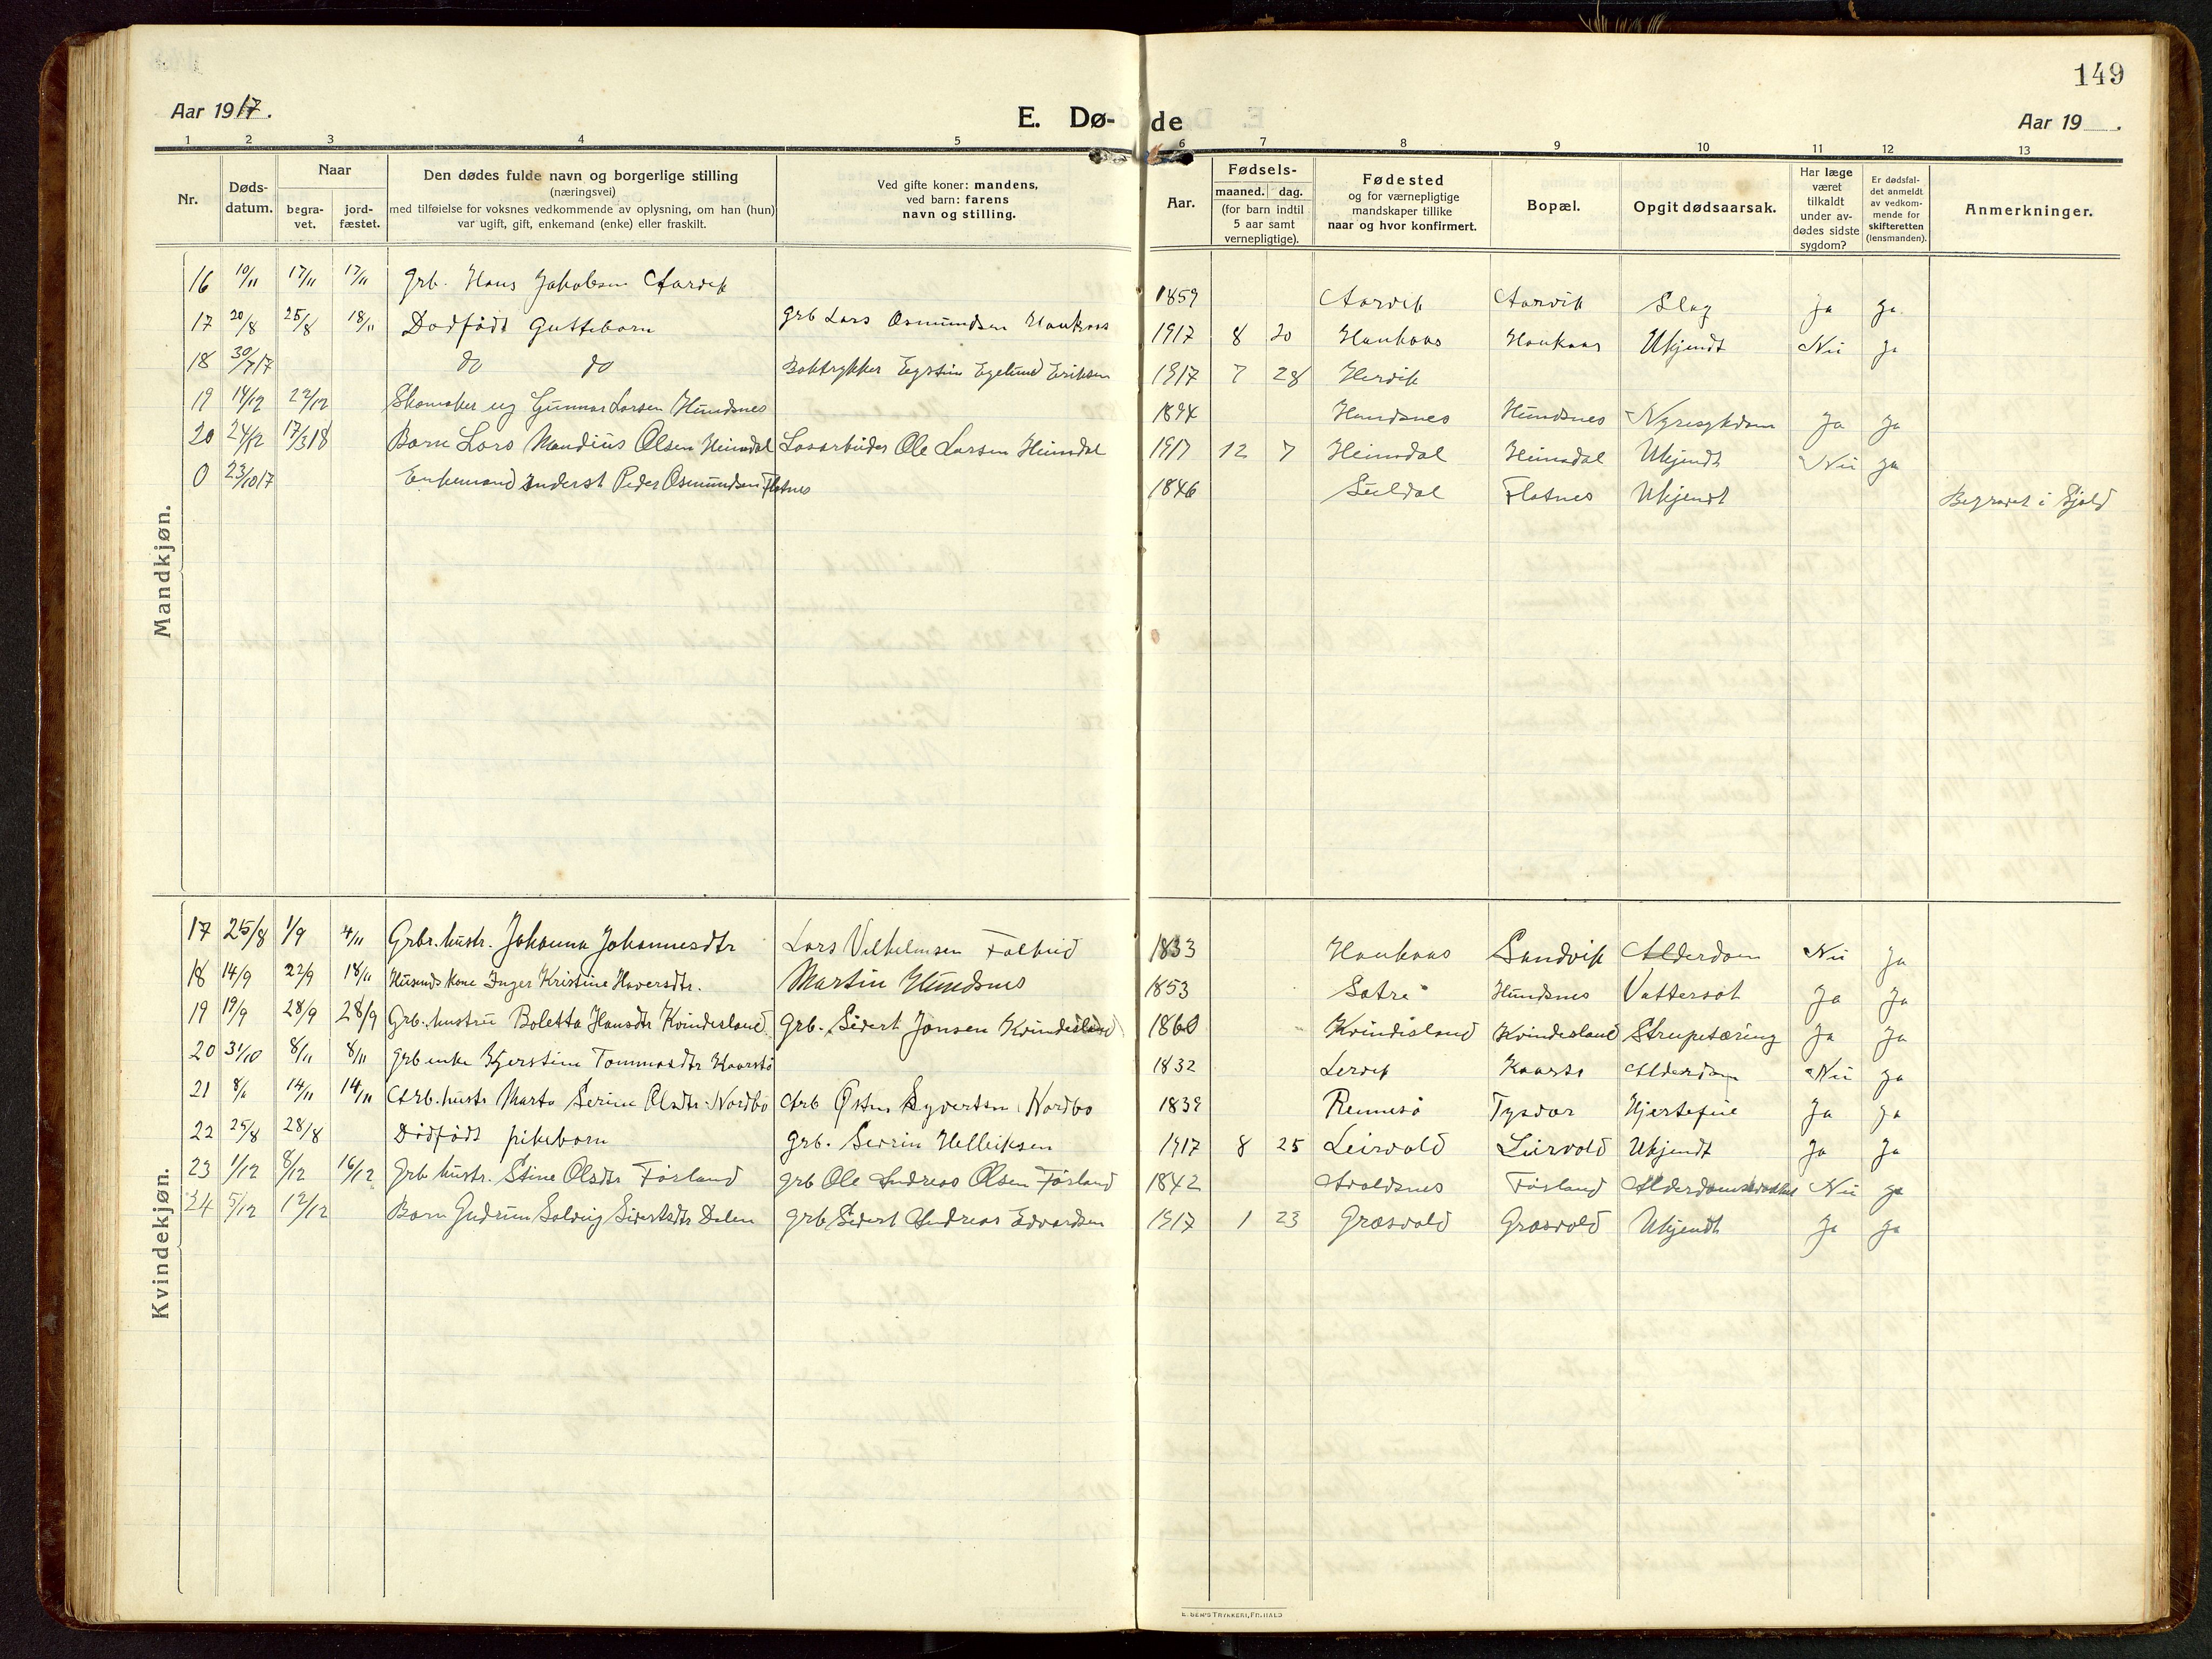 149
Aar 1917.
E. Dø-de
Aar 19 .
1 2 3 4 5 6 7 8 9 10 11 12 13
Nr.
Døds-
datum.
Naar
begra-
vet.
jord-
fæstet.
Den dødes fulde navn og borgerlige stilling
(næringsvei)
med tilføielse for voksnes vedkommende av oplysning, om han (hun)
var ugift, gift, enkemand (enke) eller fraskilt.
Ved gifte koner: mandens,
ved barn: farens
navn og stilling.
Aar.
Fødsels-
maaned. dag.
(for barn indtil
5 aar samt
vernepligtige).
Fødested
og for værnepligtige
mandskaper tillike
naar og hvor konfirmert.
Bopæl.
Opgit dødsaarsak.
Har læge
været
tilkaldt
under av-
dødes sidste
sygdom?
Er dødsfal-
det anmeldt
av vedkom-
mende for
skifteretten
(lensmanden).
Anmerkninger.
Mandkjøn.
16 10/11 17/11 17/11 Grb. Hans Jakobsen Aarvik 1859 Aarvik Aarvik Slag Ja Ja
17 20/8 25/8 18/11 Dødfødt Guttebarn Grb Lars Osmundsen Haukaas 1917 8 20 Haukaas Haukaas Ukjendt Nei Ja
18 30/7 17 do do Boktrykker Eystein Egelund Eriksen 1917 7 28 Hervik
19 14/12 22/12 Skomaker ug Gunnar Larsen Hundsnes 1894 Hundsnes Hundsnes Nyresykdom Ja Ja
20 24/12 17/3 18 Barn Lars Mandius Olsen Heimdal Løsarbeider Ole Larsen Heimdal 1917 12 7 Heimdal Heimdal Ukjendt Nei Ja
0 23/10 17 Enkemand inderst Peder Osmundsen Flatnes 1846 Suldal Flatnes Ukjendt Begravet i Skjold
Kvindekjøn.
17 25/8 1/9 4/11 Grbr. hustr. Johanna Johannesdtr Lars Vilhelmsen Falkeid 1833 Haukaas Sandvik Alderdom Nei Ja
18 14/9 22/9 18/11 Husmds kone Inger Kristine Haversdtr. Martin Hundsnes 1853 Satre Hundsnes Vattersot Ja Ja
19 19/9 28/9 28/9 Grb. hustru Boletta Hansdtr Kvindesland Grb. Sivert Jonsen Kvindesland 1860 Kvindisland Kvindesland Strupetæring Ja Ja
20 31/10 8/11 8/11 Grb enke Kjerstina Tommasdtr Kaarstø 1832 Lervik Kaarstø Alderdom Nei Ja
21 8/11 14/11 14/11 Grb. hustr Marta Serine Olsdtr Nordbø Grb Østen Syvertsen Nordbø 1839 Rennesø Tysvær Hjertefeil Ja Ja
22 25/8 28/8 Dødfødt pikebarn Grb. Severin Helliksen 1917 8 25 Leirvold Leirvold Ukjendt Ja Ja
23 1/12 8/12 16/12 Grb hustr. Stine Olsdtr Førland Grb Ole Andreas Olsen Førland 1842 Avaldsnes Førland Alderdomssvakhet Nei Ja
24 5/12 12/12 Barn Gudrun Solveig Sivertsdtr Dalen Grb Sivert Andreas Edvardsen 1917 1 23 Grasvold Grasvold Ukjendt Ja Ja